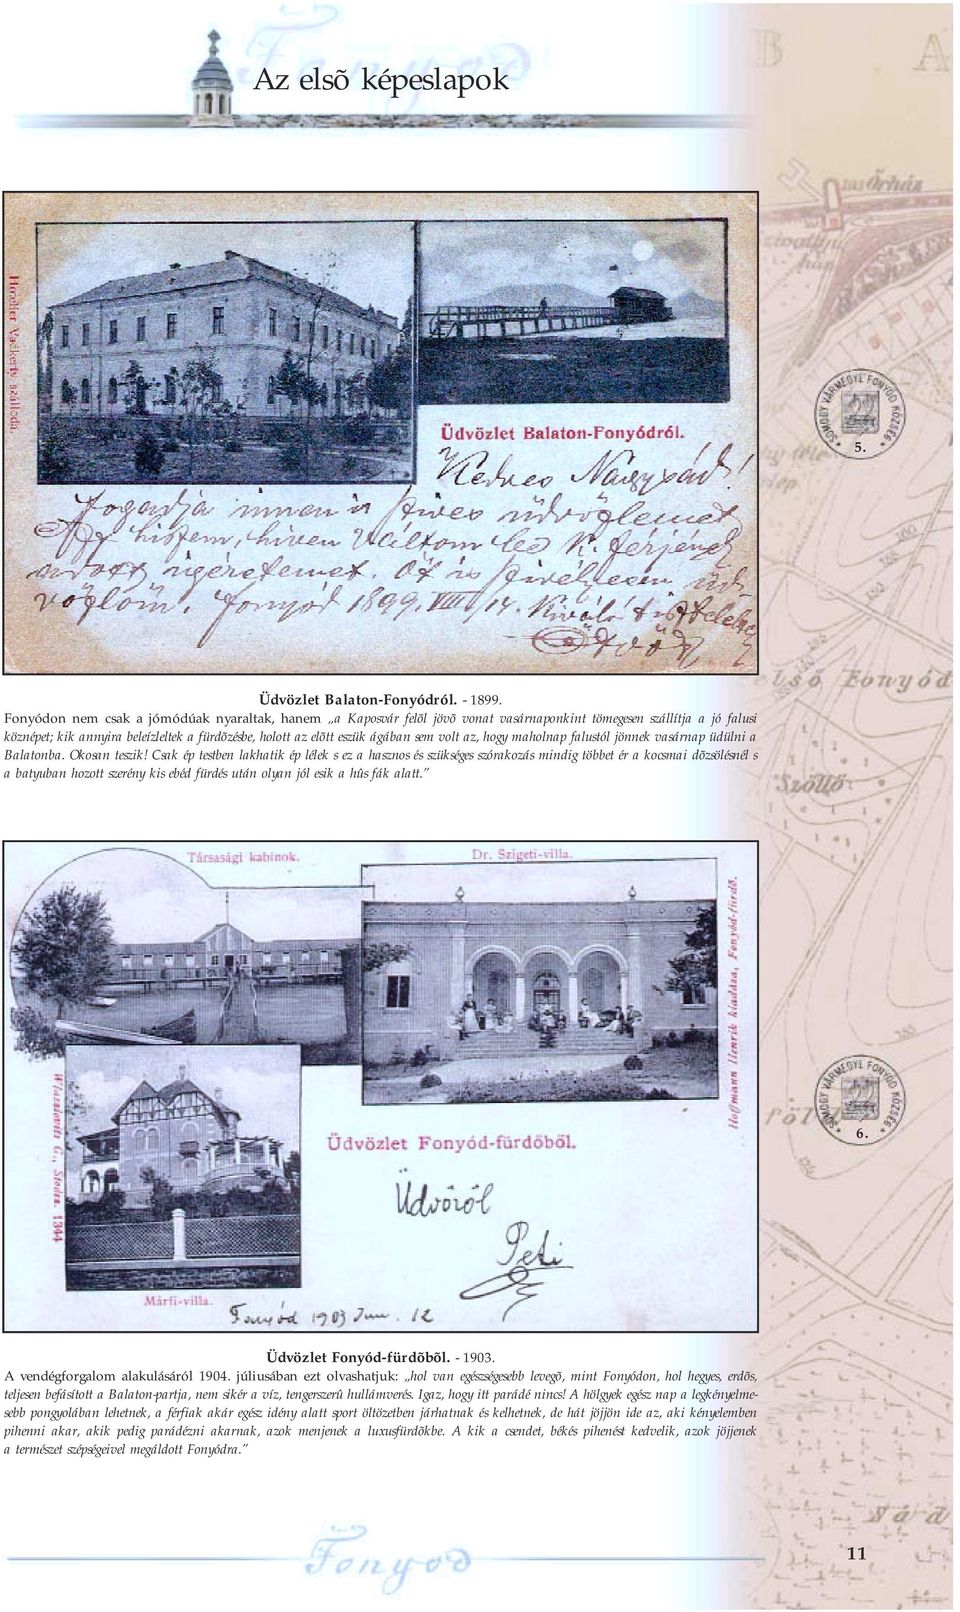 Az elsõ képeslapok
Horeliter Vackerts szálloda.
Üdvözlet Balaton-Fonyódról.
Kedves Nagysád!
Fogadja innen is szives üdvözletemet
hiven váltom be k. férjének
adott igéretemet. Őt is szivélyesen üd-
vözlöm. Fonyód 1899. VIII/14. Kiváló tisztelettel
SOMOGY VÁRMEGYE FONYÓD KÖZSÉG
5.
Őrház
Alsó Fonyód
Szőllő
Üdvözlet Balaton-Fonyódról. - 1899.
Fonyódon nem csak a jómódúak nyaraltak, hanem „a Kaposvár felõl jövõ vonat vasárnaponkint tömegesen szállítja a jó falusi
köznépet; kik annyira beleízleltek a fürdõzésbe, holott az elõtt eszük ágában sem volt az, hogy maholnap falustól jönnek vasárnap üdülni a
Balatonba. Okosan teszik! Csak ép testben lakhatik ép lélek s ez a hasznos és szükséges szórakozás mindig többet ér a kocsmai dõzsölésnél s
a batyuban hozott szerény kis ebéd fürdés után olyan jól esik a hûs fák alatt.”
Társasági kabinok.
Dr. Szigeti-villa.
Hoffmann Henrik kiadása, Fonyód-fürdő.
1344
Üdvözlet Fonyód-fürdőből.
Üdvöröl
Peti
Márfi-villa.
Fonyód 1903 Jun. 12
SOMOGY VÁRMEGYE FONYÓD KÖZSÉG
6.
Üdvözlet Fonyód-fürdõbõl. - 1903.
A vendégforgalom alakulásáról 1904. júliusában ezt olvashatjuk: „hol van egészségesebb levegõ, mint Fonyódon, hol hegyes, erdõs,
teljesen befásított a Balaton-partja, nem sikér a víz, tengerszerû hullámverés. Igaz, hogy itt parádé nincs! A hölgyek egész nap a legkényelme-
sebb pongyolában lehetnek, a férfiak akár egész idény alatt sport öltözetben járhatnak és kelhetnek, de hát jöjjön ide az, aki kényelemben
pihenni akar, akik pedig parádézni akarnak, azok menjenek a luxusfürdõkbe. A kik a csendet, békés pihenést kedvelik, azok jöjjenek
a természet szépségeivel megáldott Fonyódra.”
Fonyód
11